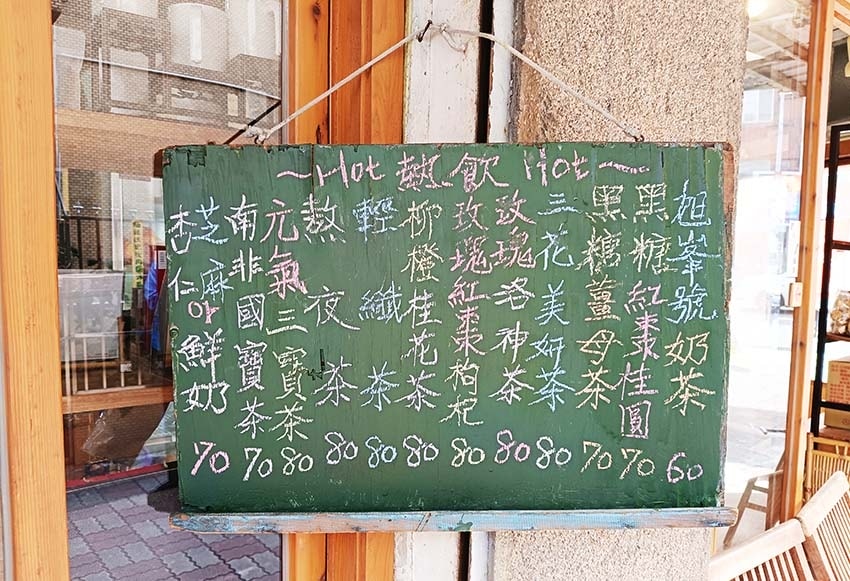 ~Hot 熱飲 Hot~
旭峯號奶茶 60
黑糖紅棗桂圓 70
黑糖薑母茶 70
三花美妍茶 80
玫瑰洛神茶 80
玫瑰紅棗枸杞 80
柳橙桂花茶 80
輕纖茶 80
熬夜茶 80
元氣三寶茶 80
南非國寶茶 70
芝麻 or 杏仁 鮮奶 70